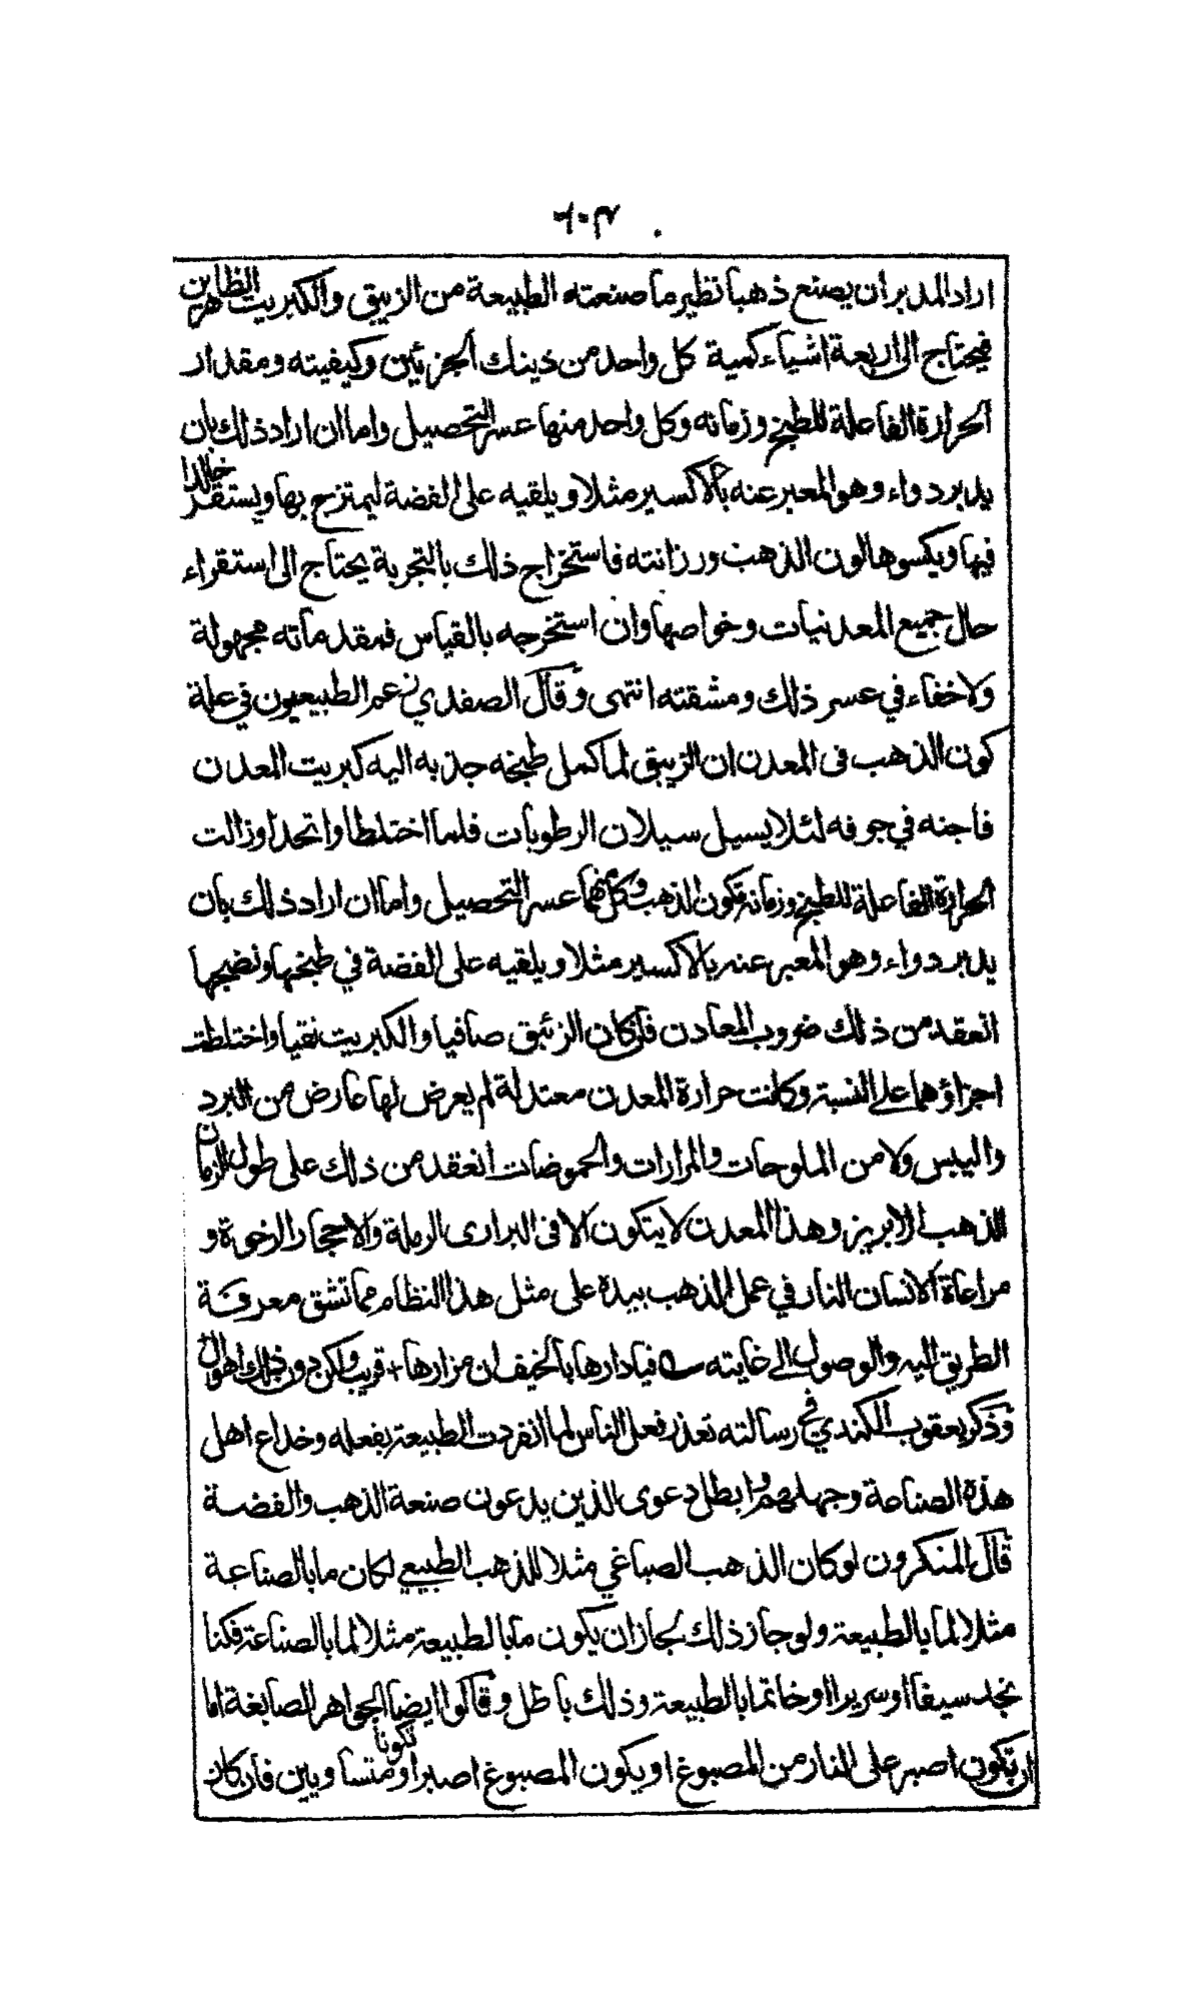 اراد المدبر ان يصنع ذهبا نظير ما صنعته الطبيعة من الزيبق والكبريت الظاهرين
فيحتاج الى اربعة اشياء كمية كل واحد من ذينك الجزئين وكيفيته ومقدار
الحرارة الفاعلة للطبخ وزمانه وكل واحد منها عسر التحصيل واما ان اراد ذلك بان
يدبر دواء وهو المعبر عنه بالاكسير مثلا ويلقيه على الفضة ليمتزج بها ويستقر خالدا
فيها ويكسوها لون الذهب ورزانته فاستخراج ذلك بالتجربة يحتاج الى استقراء
حال جميع المعدنيات وخواصها وان استخرجه بالقياس فمقدماته مجهولة
ولا خفاء في عسر ذلك ومشقته انتهى وقال الصفدي زعم الطبيعيون في علة
كون الذهب فى المعدن ان الزيبق لما كمل طبخه جذبه اليه كبريت المعدن
فاجنه في جوفه لئلا يسيل سيلان الرطوبات فلما اختلطا واتحدا وزالت
الحرارة الفاعلة للطبخ وزمانه تكون الذهب وكل منهما عسر التحصيل واما ان اراد ذلك بان
يدبر دواء وهو المعبر عنه بالاكسير مثلا ويلقيه على الفضة في طبخها ونضجها
انعقد من ذلك ضروب المعادن فان كان الزئبق صافيا والكبريت نقيا واختلطت
اجزاؤهما على النسبة وكانت حرارة المعدن معتدلة لم يعرض لها عارض من البرد
واليبس ولا من الملوحات والمرارات والحموضات انعقد من ذلك على طول الزمان
الذهب الابريز وهذا المعدن لا يتكون الا فى البرارى الرملة والاحجار الرخوة و
مراعاة الانسان النار في عمل الذهب بيده على مثل هذا النظام مما تشق معرفة
الطريق اليه والوصول الى غايته س فيا دارها بالخيف ان مزارها + قريب ولكن دون ذلك اهوال
وذكر يعقوب الكندي في رسالته تعذر فعل الناس لما انفردت الطبيعة بفعله وخداع اهل
هذه الصناعة وجهلهم وابطل دعوى الذين يدعون صنعة الذهب والفضة
قال المنكرون لو كان الذهب الصباغي مثلا للذهب الطبيعي لكان ما بالصناعة
مثلا لما بالطبيعة ولو جاز ذلك لجاز ان يكون ما بالطبيعة مثلا لما بالصناعة فكنا
نجد سيفا او سريرا او خاتما بالطبيعة وذلك باطل وقالوا ايضا الجواهر الصابغة اما
ان تكون اصبر على النار من المصبوغ او يكون المصبوغ اصبر او تكونا متساويين فان كان